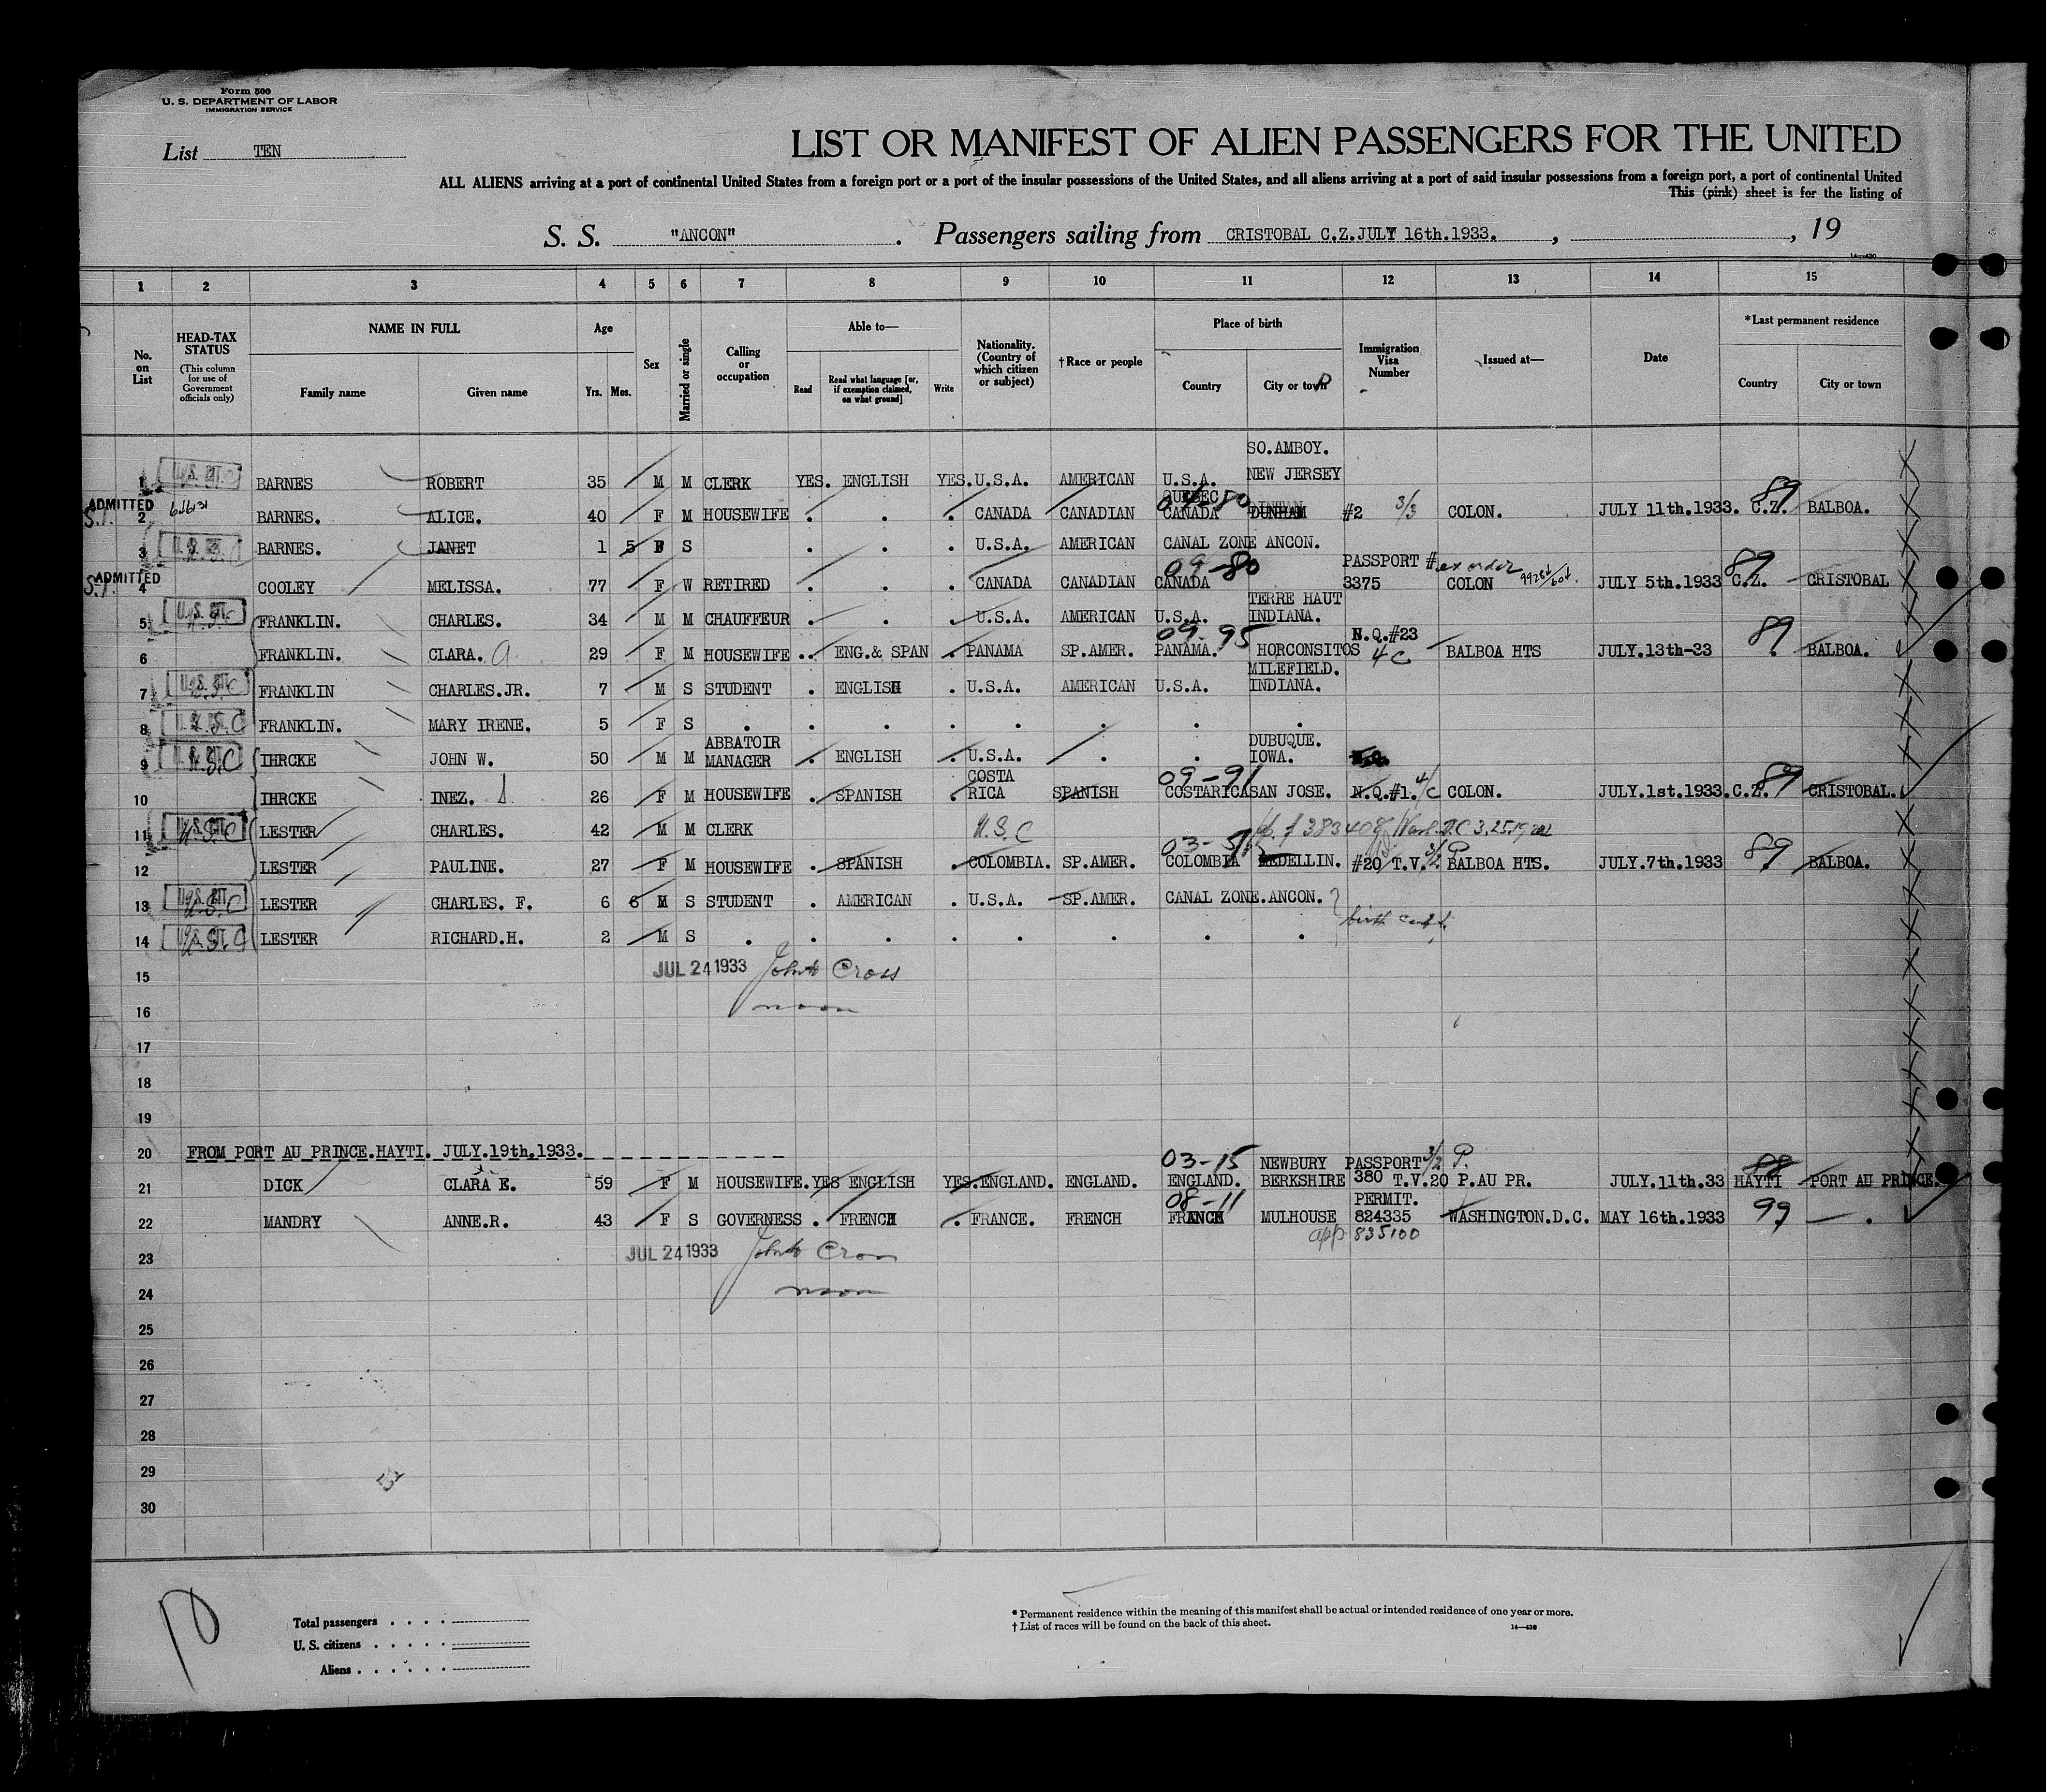 Form 500
U. S. DEPARTMENT OF LABOR
IMMIGRATION SERVICE
List TEN
LIST OR MANIFEST OF ALIEN PASSENGERS FOR THE UNITED
ALL ALIENS arriving at a port of continental United States from a foreign port or a port of the insular possessions of the United States, and all aliens arriving at a port of said insular possessions from a foreign port, a port of continental United
This (pink) sheet is for the listing of
S. S. "ANCON". Passengers sailing from CRISTOBAL C.Z.JULY 16th.1933. , , 19
14—430
1 2 3 4 5 6 7 8 9 10 11 12 13 14 15
No. on List
HEAD-TAX STATUS (This column for use of Government officials only)
NAME IN FULL
Family name Given name
Age
Yrs. Mos.
Sex
Married or single
Calling or occupation
Able to—
Read Read what language [or, if exemption claimed, on what ground] Write
Nationality. (Country of which citizen or subject)
†Race or people
Place of birth
Country City or town
Immigration Visa Number
Issued at—
Date
*Last permanent residence
Country City or town
SO.AMBOY.
1 BARNES ROBERT 35 M M CLERK YES. ENGLISH YES. U.S.A. AMERICAN U.S.A. NEW JERSEY
ADMITTED QUEBEC 89
S.I. 2 BARNES. ALICE. 40 F M HOUSEWIFE . . . CANADA CANADIAN CANADA DUNHAM #2 3/3 COLON. JULY 11th.1933. C.Z. BALBOA.
3 U.S.C BARNES. JANET 1 5 F S . . . U.S.A. AMERICAN CANAL ZONE ANCON.
ADMITTED 09-80 PASSPORT # ex order 89
S.I. 4 COOLEY MELISSA. 77 F W RETIRED . . . CANADA CANADIAN CANADA 3375 COLON JULY 5th.1933 C.Z. CRISTOBAL
TERRE HAUT
5 FRANKLIN. CHARLES. 34 M M CHAUFFEUR . . . U.S.A. AMERICAN U.S.A. INDIANA.
09-95 N.Q.#23 89
6 FRANKLIN. CLARA. A 29 F M HOUSEWIFE .. ENG.& SPAN . PANAMA SP.AMER. PANAMA. HORCONSITOS 4C BALBOA HTS JULY.13th-33 . BALBOA.
MILEFIELD.
7 U.S.C FRANKLIN CHARLES.JR. 7 M S STUDENT . ENGLISH . U.S.A. AMERICAN U.S.A. INDIANA.
8 U.S.C FRANKLIN. MARY IRENE. 5 F S . . . . . . . .
ABBATOIR DUBUQUE.
9 U.S.C IHRCKE JOHN W. 50 M M MANAGER . ENGLISH . U.S.A. . . IOWA.
COSTA 09-91 89
10 IHRCKE INEZ. 26 F M HOUSEWIFE . SPANISH . RICA SPANISH COSTARICA SAN JOSE. N.Q.#1. 4/C COLON. JULY.1st.1933. C.Z. CRISTOBAL.
11 U.S.C LESTER CHARLES. 42 M M CLERK U.S.C
03-51 3/2 P 89
12 LESTER PAULINE. 27 F M HOUSEWIFE . SPANISH . COLOMBIA. SP.AMER. COLOMBIA MEDELLIN. #20 T.V. BALBOA HTS. JULY.7th.1933 BALBOA.
13 U.S.C LESTER CHARLES. F. 6 6 M S STUDENT . AMERICAN . U.S.A. SP.AMER. CANAL ZONE.ANCON.
birth
14 U.S.C LESTER RICHARD.H. 2 M S . . . . . . . .
15 JUL 24 1933 Cross
16
17
18
19
20 FROM PORT AU PRINCE.HAYTI. JULY.19th.1933.
03-15 NEWBURY PASSPORT 3/2 P. 88
21 DICK CLARA E. 59 F M HOUSEWIFE. YES ENGLISH YES. ENGLAND. ENGLAND. ENGLAND. BERKSHIRE 380 T.V.20 P.AU PR. JULY.11th.33 HAYTI PORT AU PRINCE.
08-11 PERMIT.
22 MANDRY ANNE.R. 43 F S GOVERNESS . FRENCH . FRANCE. FRENCH FRANCE MULHOUSE 824335 WASHINGTON.D.C. MAY 16th.1933 99 .
app 835100
23 JUL 24 1933
24
25
26
27
28
29
30
10
Total passengers
U. S. citizens
Aliens
* Permanent residence within the meaning of this manifest shall be actual or intended residence of one year or more.
† List of races will be found on the back of this sheet.
14—430